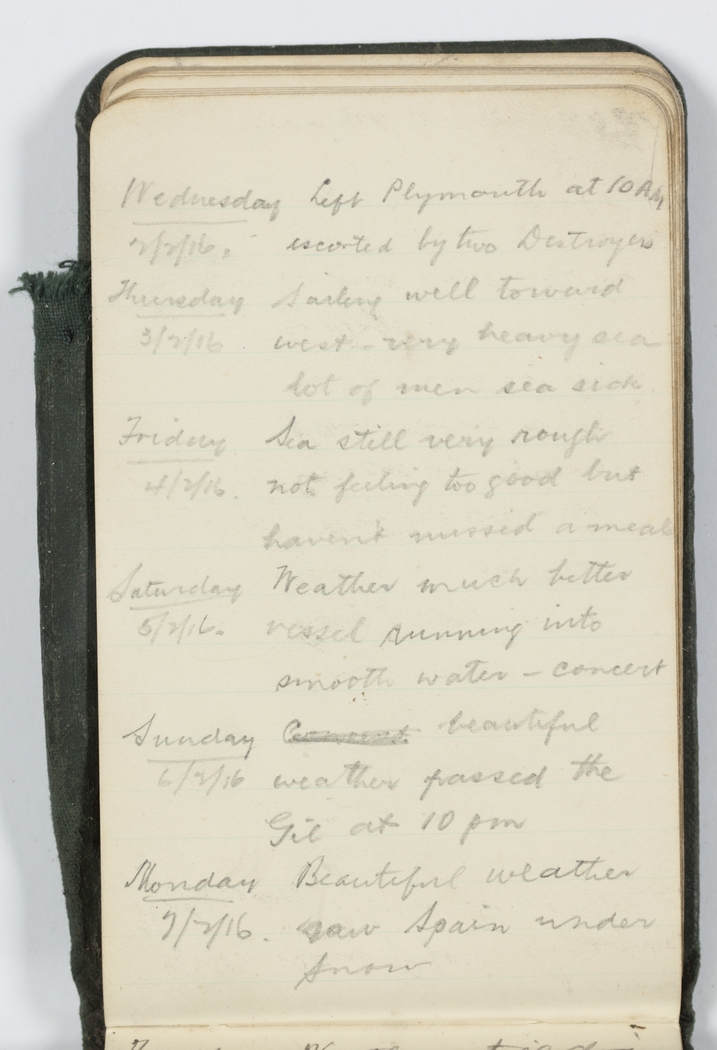 Wednesday Left Plymouth at 10 AM
2/2/16. escorted by two Destroyers
Thursday Sailing well toward
3/2/16 west - very heavy sea
lot of men sea sick
Friday Sea still very rough
4/2/16. not feeling too good but
haven't missed a meal
Saturday Weather much better
5/2/16. vessel running into
smooth water - concert
Sunday Concert beautiful
6/2/16 weather passed the
Gib at 10 pm
Monday Beautiful weather
7/2/16. saw Spain under
snow